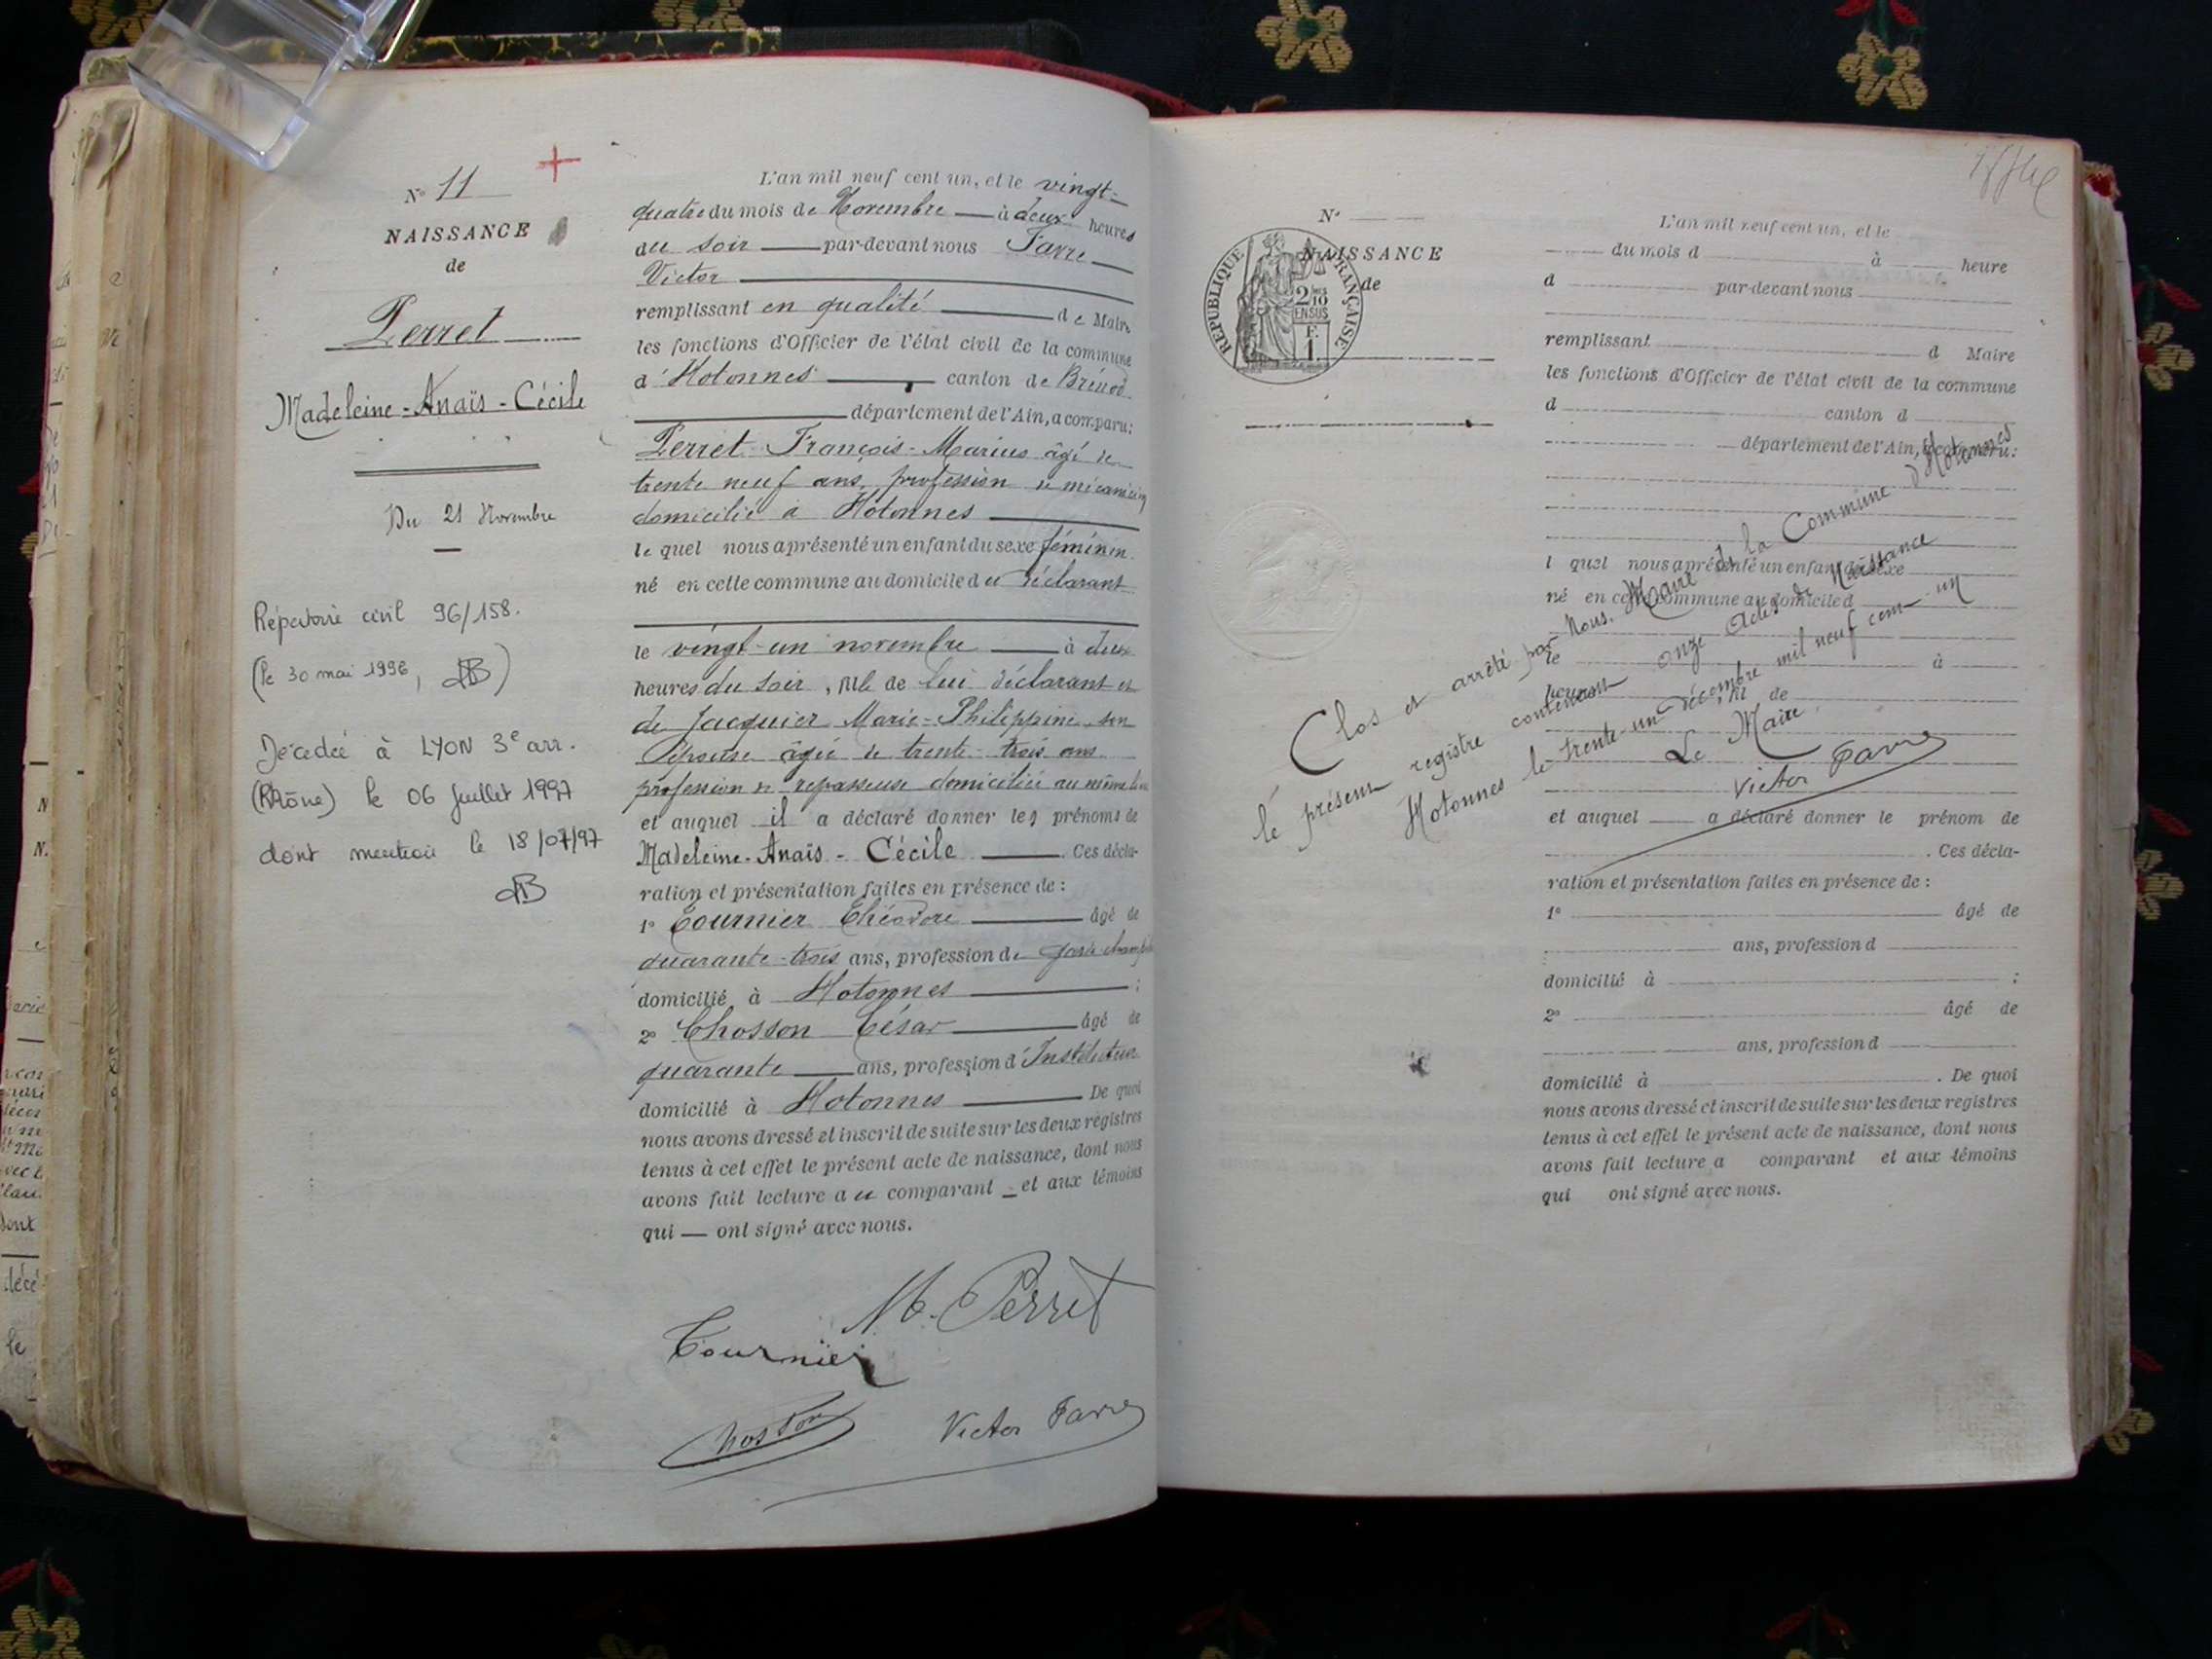 N° 11
NAISSANCE
de
Perret
Madeleine - Anaïs - Cécile
Du 21 Novembre
Répertoire civil 96/158.
(le 30 mai 1996, AB)
Décédée à LYON 3e arr.
(Rhône) le 06 Juillet 1997
dont mention le 18/07/97
AB
L'an mil neuf cent un, et le vingt-
quatre du mois de Novembre à deux heures
du soir par-devant nous Favre
Victor
remplissant en qualité de Maire
les fonctions d'Officier de l'état civil de la commune
d'Hotonnes canton de Brénod
département de l'Ain, a comparu:
Perret François-Marius âgé de
trente neuf ans, profession de mécanicien
domicilié à Hotonnes
lequel nous a présenté un enfant du sexe féminin
né en cette commune au domicile du déclarant
le vingt-un novembre à deux
heures du soir, fille de lui déclarant et
de Jacquier Marie-Philippine son
épouse âgée de trente-trois ans
profession de repasseuse domiciliée au même lieu
et auquel il a déclaré donner les prénoms de
Madeleine-Anaïs-Cécile. Ces décla-
ration et présentation faites en présence de:
1° Tournier Théodore âgé de
quarante-trois ans, profession de garde champêtre
domicilié à Hotonnes;
2° Chosson César âgé de
quarante ans, profession d'Instituteur
domicilié à Hotonnes De quoi
nous avons dressé et inscrit de suite sur les deux registres
tenus à cet effet le présent acte de naissance, dont nous
avons fait lecture au comparant et aux témoins
qui ont signé avec nous.
M. Perret
Tournier
Chosson
Victor Favre
N°
NAISSANCE
de
RÉPUBLIQUE FRANÇAISE
2/10
EN SUS
F.
1.
L'an mil neuf cent un, et le
du mois d à heure
d par-devant nous
remplissant d Maire
les fonctions d'Officier de l'état civil de la commune
d canton d
département de l'Ain, a comparu:
l quel nous a présenté un enfant du sexe
né en cette commune au domicile d
le à
heures , fil de
et auquel a déclaré donner le prénom de
. Ces décla-
ration et présentation faites en présence de:
1° âgé de
ans, profession d
domicilié à ;
2° âgé de
ans, profession d
domicilié à . De quoi
nous avons dressé et inscrit de suite sur les deux registres
tenus à cet effet le présent acte de naissance, dont nous
avons fait lecture a comparant et aux témoins
qui ont signé avec nous.
Clos et arrêté par Nous, Maire de la Commune d'Hotonnes
le présent registre contenant onze Actes de Naissance
Hotonnes le trente-un Décembre mil neuf cent un
Le Maire
Victor Favre